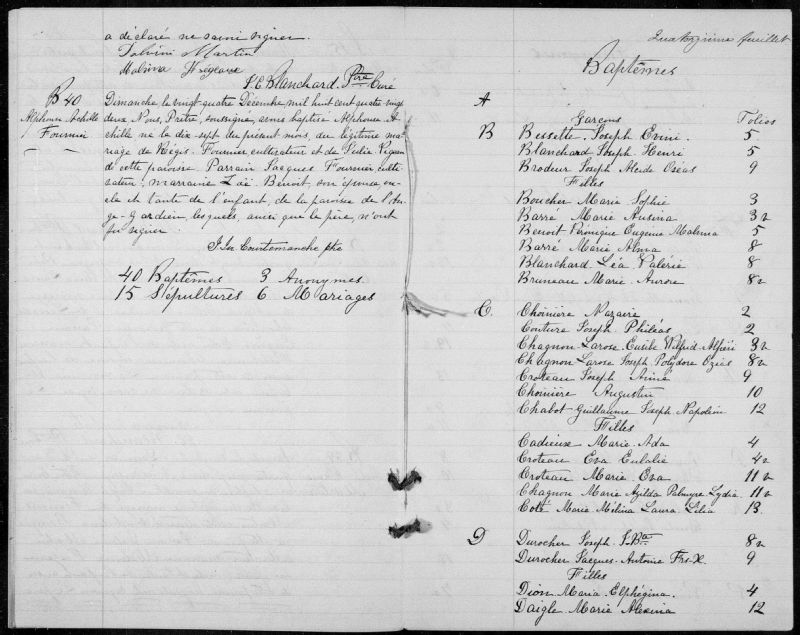 a déclaré ne savoir signer.
Martin
Malvina
J. E. Blanchard Ptre Curé
B 40
Alphonse Achille
Fournier
Dimanche, le vingt-quatre Décembre, mil huit cent quatre vingt
deux Nous, Prêtre, soussigné, avons baptisé Alphonse A-
chille né le dix-sept du présent mois, du légitime ma-
riage de Régis Fournier, cultivateur et de Julie
de cette paroisse. Parrain Jacques Fournier culti-
vateur, marraine Zoé Benoit, son épouse on-
cle et tante de l'enfant, de la paroisse de l'An-
ge-Gardien, lesquels, ainsi que le père, n'ont
pu signer.
J. An Courtemanche ptre
40 Baptêmes 3 Anonymes
15 Sépultures 6 Mariages
Quatorzième feuillet
Baptêmes
A
Garçons Folios
B Bessette Joseph 5
Blanchard Joseph Henri 5
Brodeur Joseph Alcide Oséas 9
Filles
Boucher Marie Sophie 3
Barré Marie 3v
Benoit Véronique Eugénie Malvina 5
Barré Marie Alma 8
Blanchard Léa Valérie 8
Bruneau Marie Aurore 8v
C Choinière Nazaire 2
Couture Joseph Philéas 2
Chagnon Larose Eusèbe Wilfrid 3v
Chagnon Larose Joseph Polydore Ozias 8v
Croteau Joseph Aimé 9
Choinière Augustin 10
Chabot Guillaume Joseph Napoléon 12
Filles
Cadieux Marie Ada 4
Croteau Eva Eulalie 4v
Croteau Marie Eva 11v
Chagnon Marie Azilda Palmyre Lydia 11v
Coté Marie Mélina Laura Lélia 13
D Durocher Joseph J. Bte 8v
Durocher Jacques Antoine Frs-X. 9
Filles
Dion Maria Elphégina 4
Daigle Marie Alexina 12